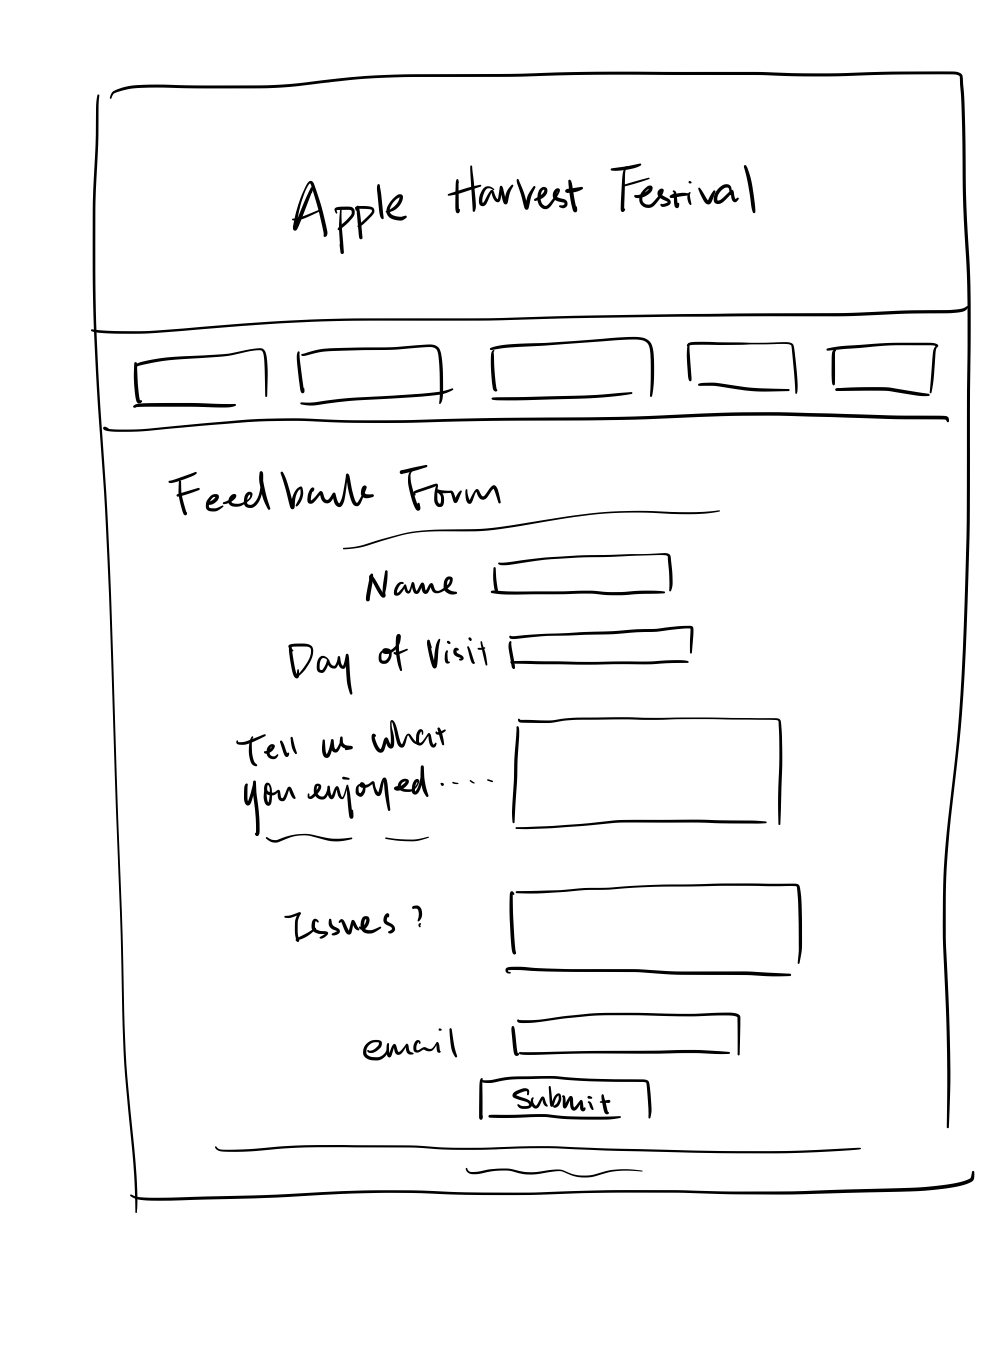 Apple Harvest Festival
Feedback Form
Name
Day of Visit
Tell us what
you enjoyed.....
Issues?
email
Submit